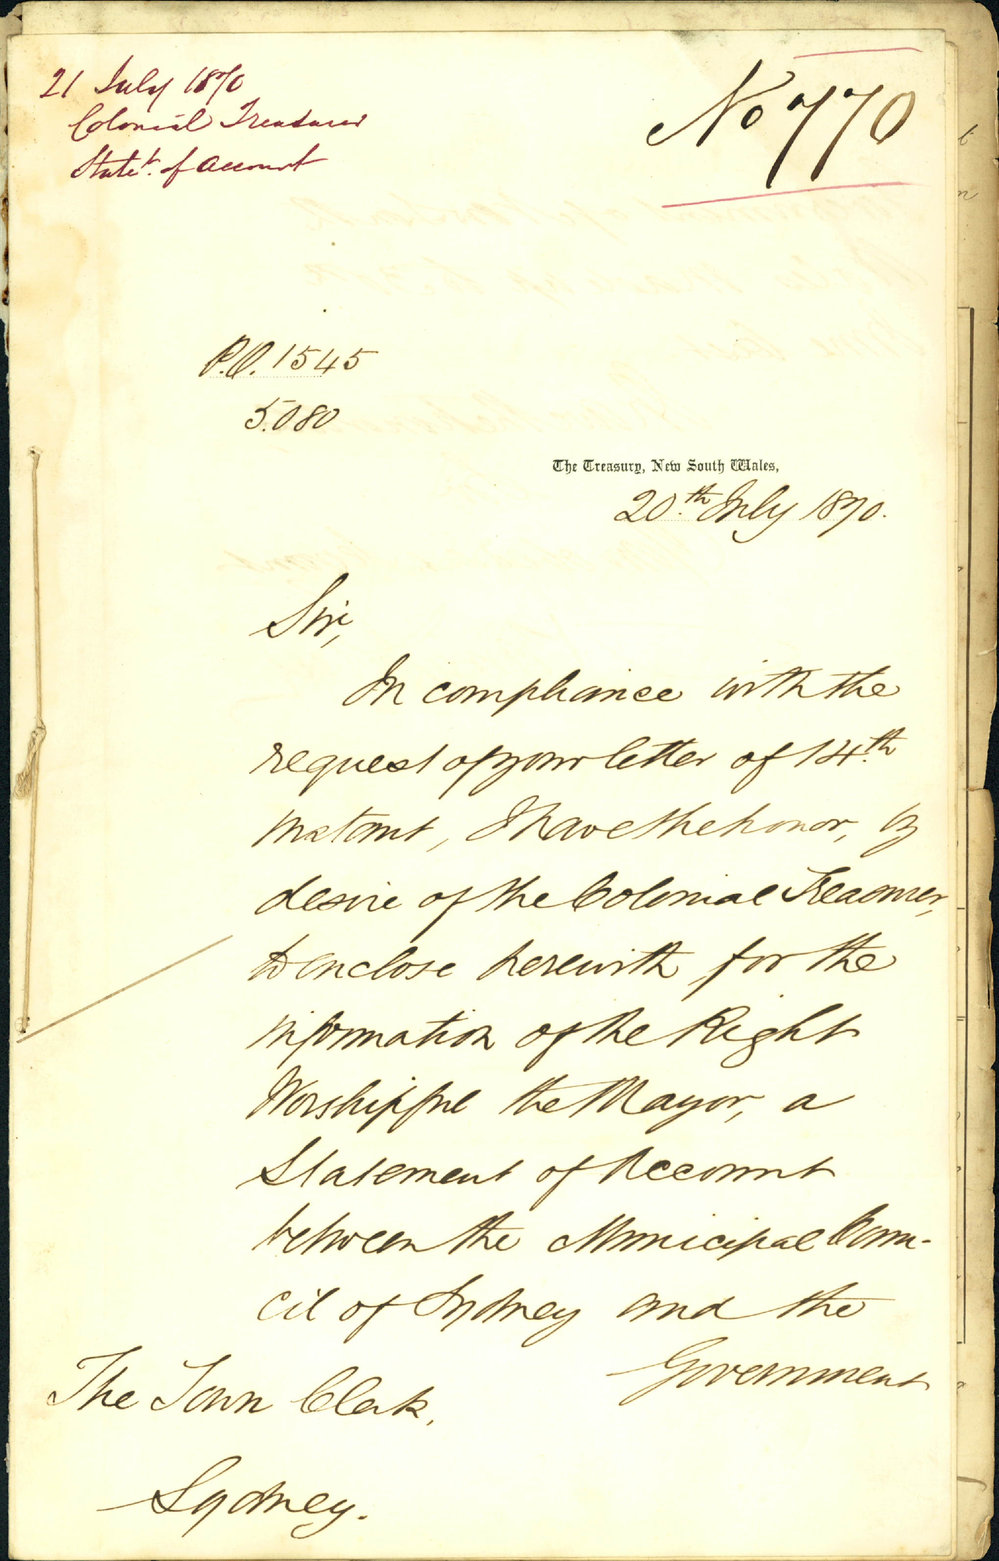 21 July 1870
Colonial Treasurer
Statet. of Account
No 770
P.O. 1545
5.080
The Treasury, New South Wales,
20.th July 1870.
Sir,
In compliance with the
request of your letter of 14.th
instant, I have the honor, by
desire of the Colonial Treasurer,
to enclose herewith for the
information of the Right
Worshipful the Mayor, a
Statement of Account
between the Municipal Coun-
cil of Sydney and the
Government
The Town Clerk,
Sydney.